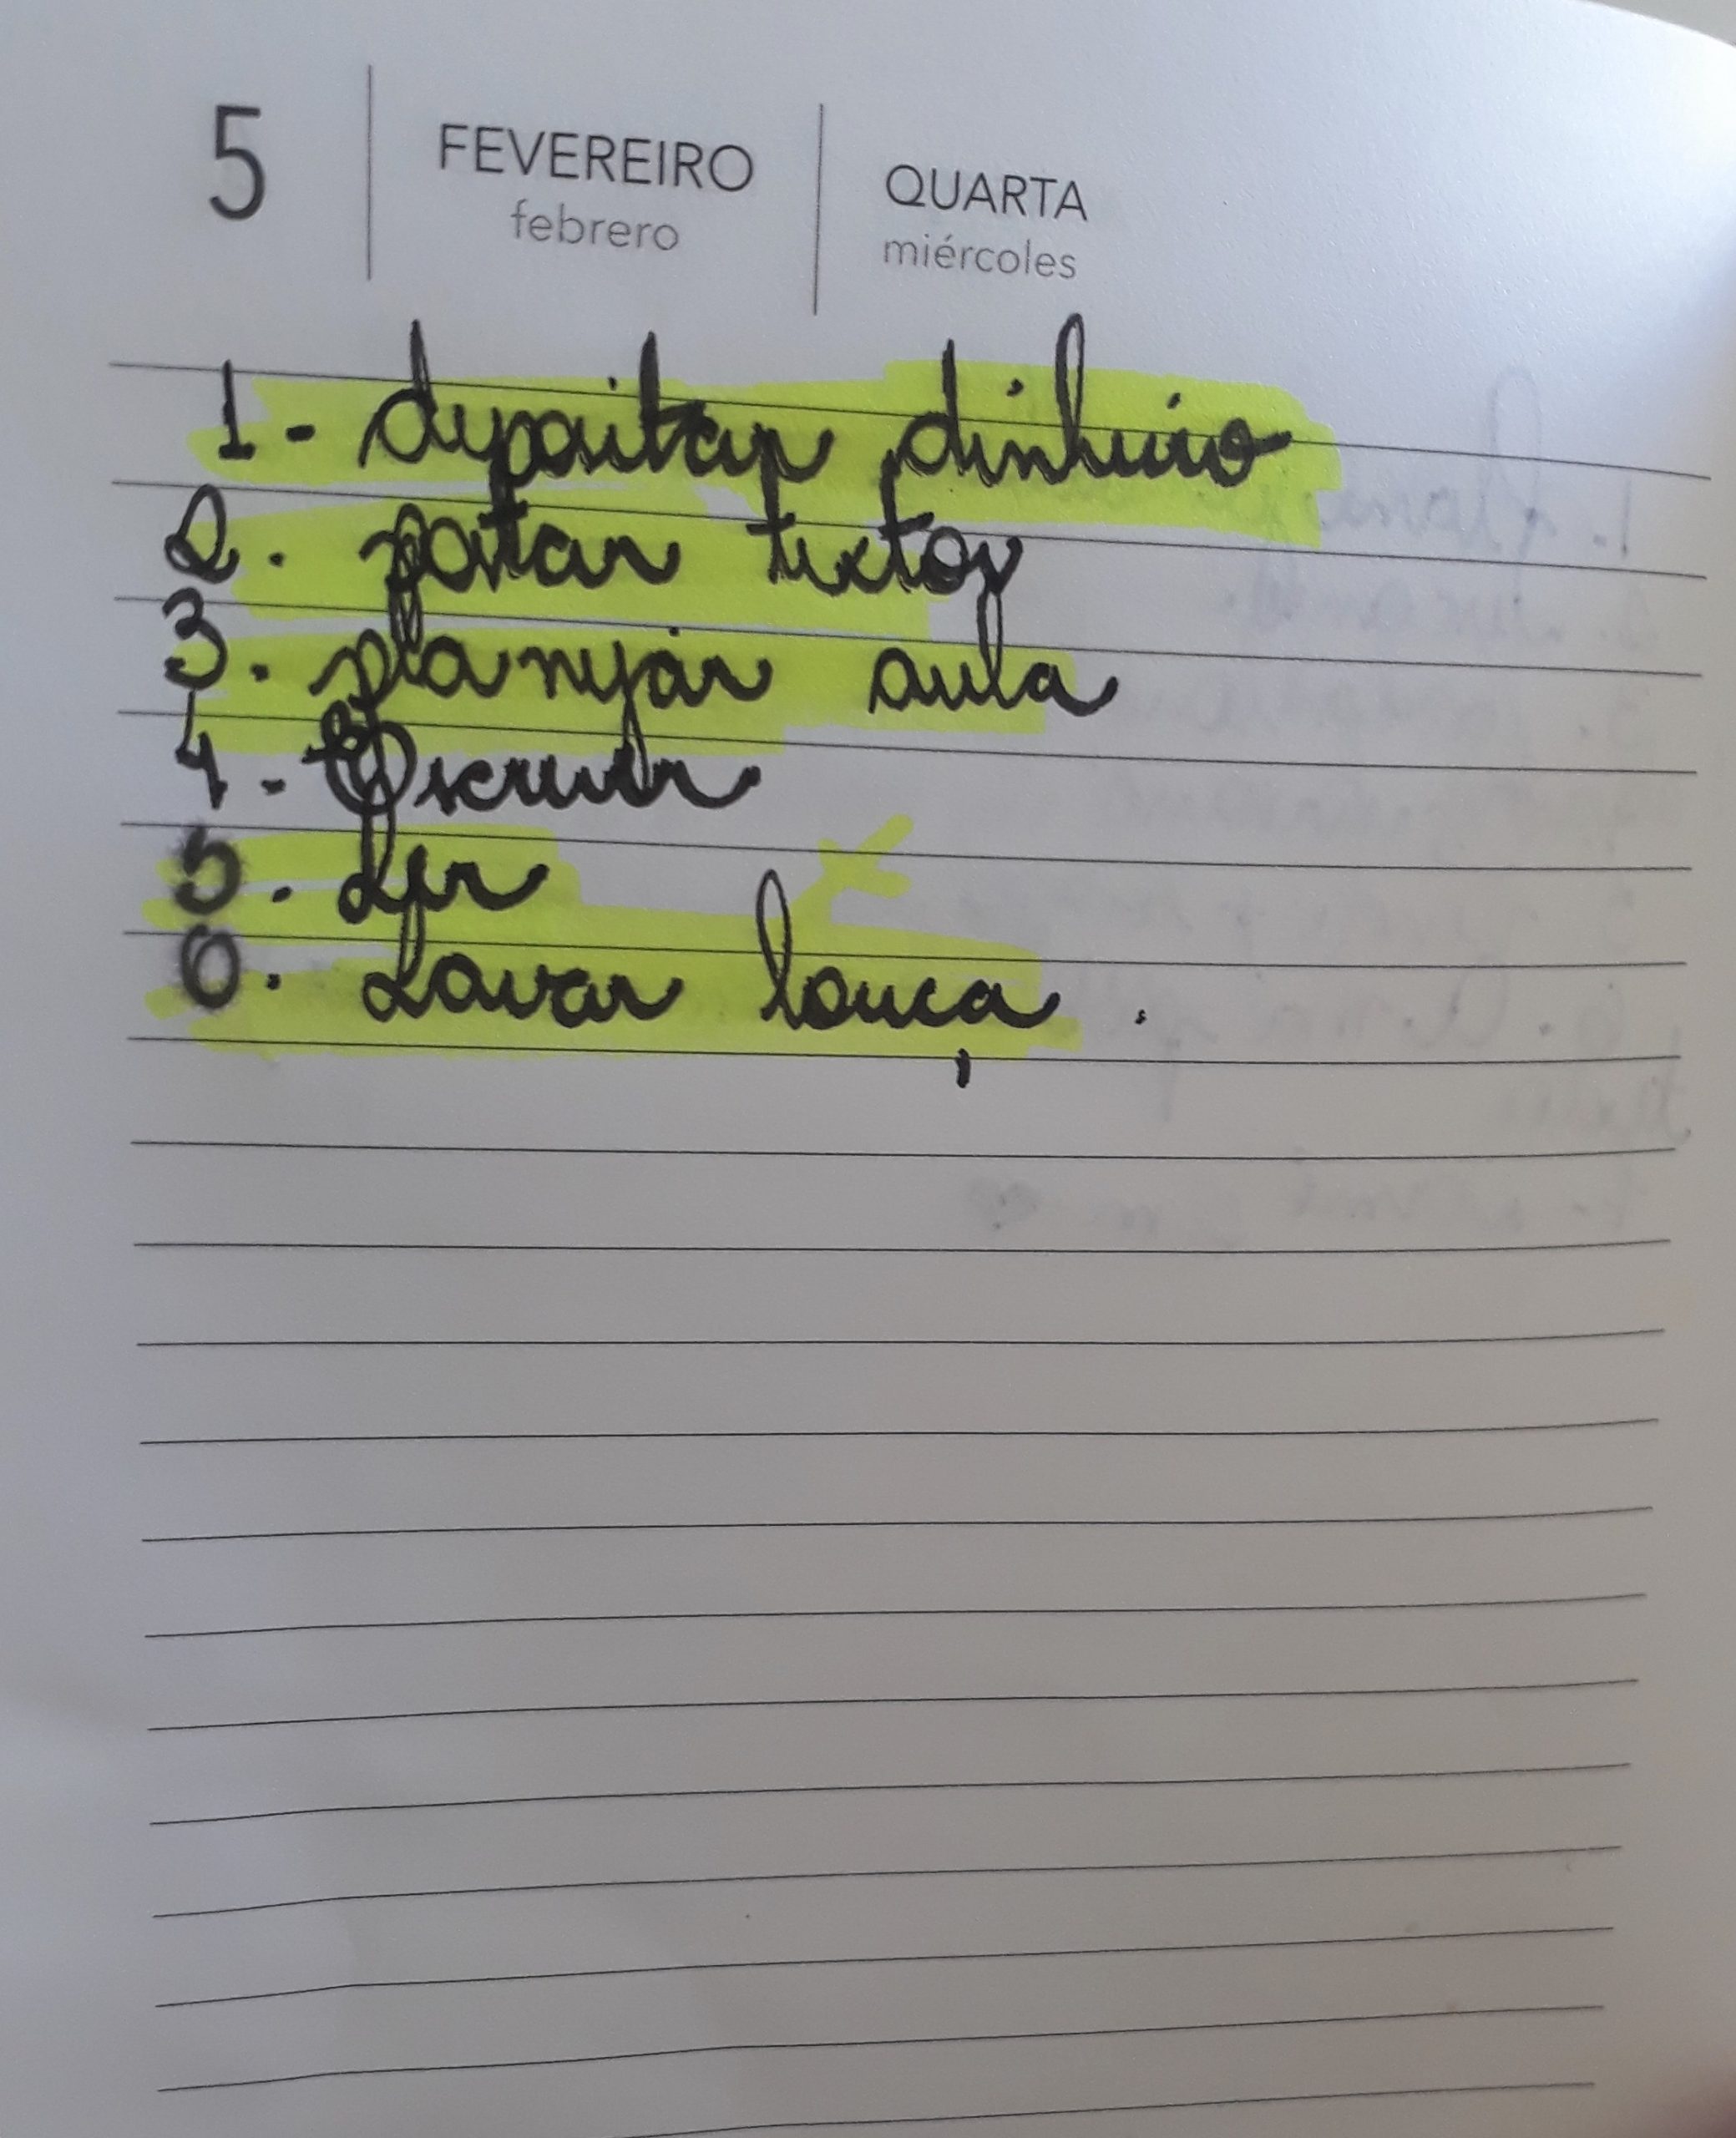 5 FEVEREIRO QUARTA
febrero miércoles
1- depositar dinheiro
2. postar textos
3. planejar aula
4- Escrever
5. Ler
6. Lavar louça.